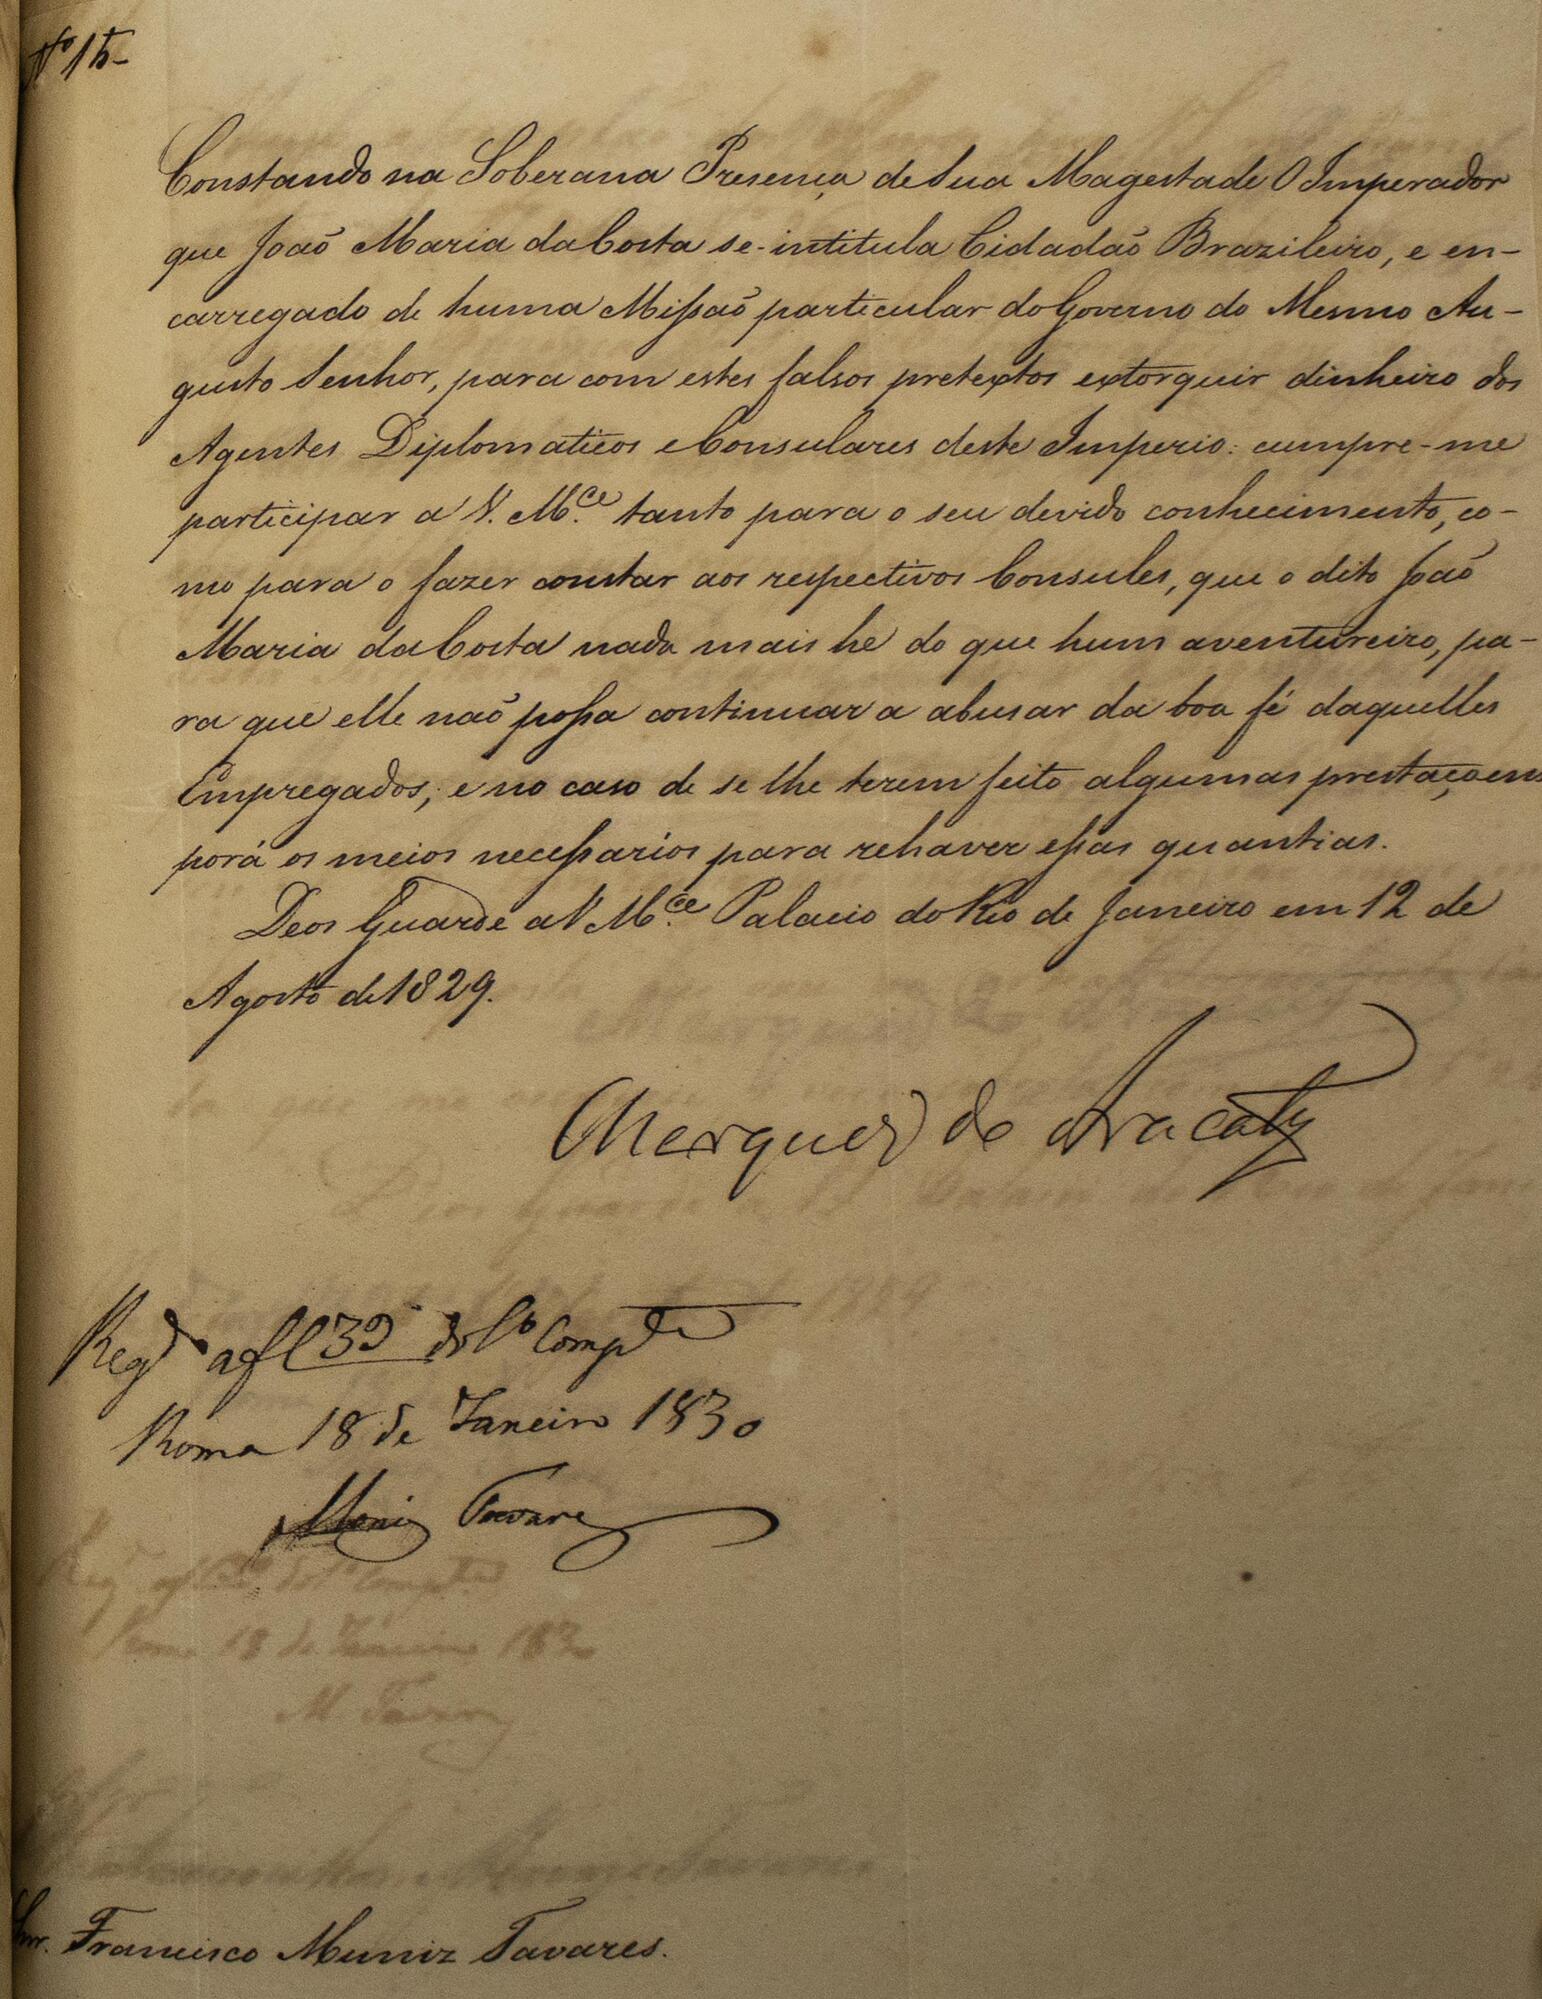 Nº 15
Constando na Soberana Presença de Sua Magestade O Imperador
que João Maria da Costa se-intitula Cidadão Brazileiro, e en-
carregado de huma Missão particular do Governo do Mesmo Au-
gusto Senhor, para com estes falsos pretextos extorquir dinheiro dos
Agentes Diplomaticos e Consulares deste Imperio: cumpre-me
participar a V. M.ce tanto para o seu devido conhecimento, co-
mo para o fazer constar aos respectivos Consules, que o dito João
Maria da Costa nada mais he do que hum aventureiro, pa-
ra que elle não possa continuar a abusar da boa fé daquelles
Empregados; e no caso de se lhe terem feito algumas prestaçoens
porá os meios necessarios para rehaver essas quantias.
Deos Guarde a V M.ce Palacio do Rio de Janeiro em 12 de
Agosto de 1829.
Marquez de Aracaty
Reg.do a fl 39 do L.º Comp.te
Roma 18 de Janeiro 1830
Moniz Tavares
Snr. Francisco Muniz Tavares.